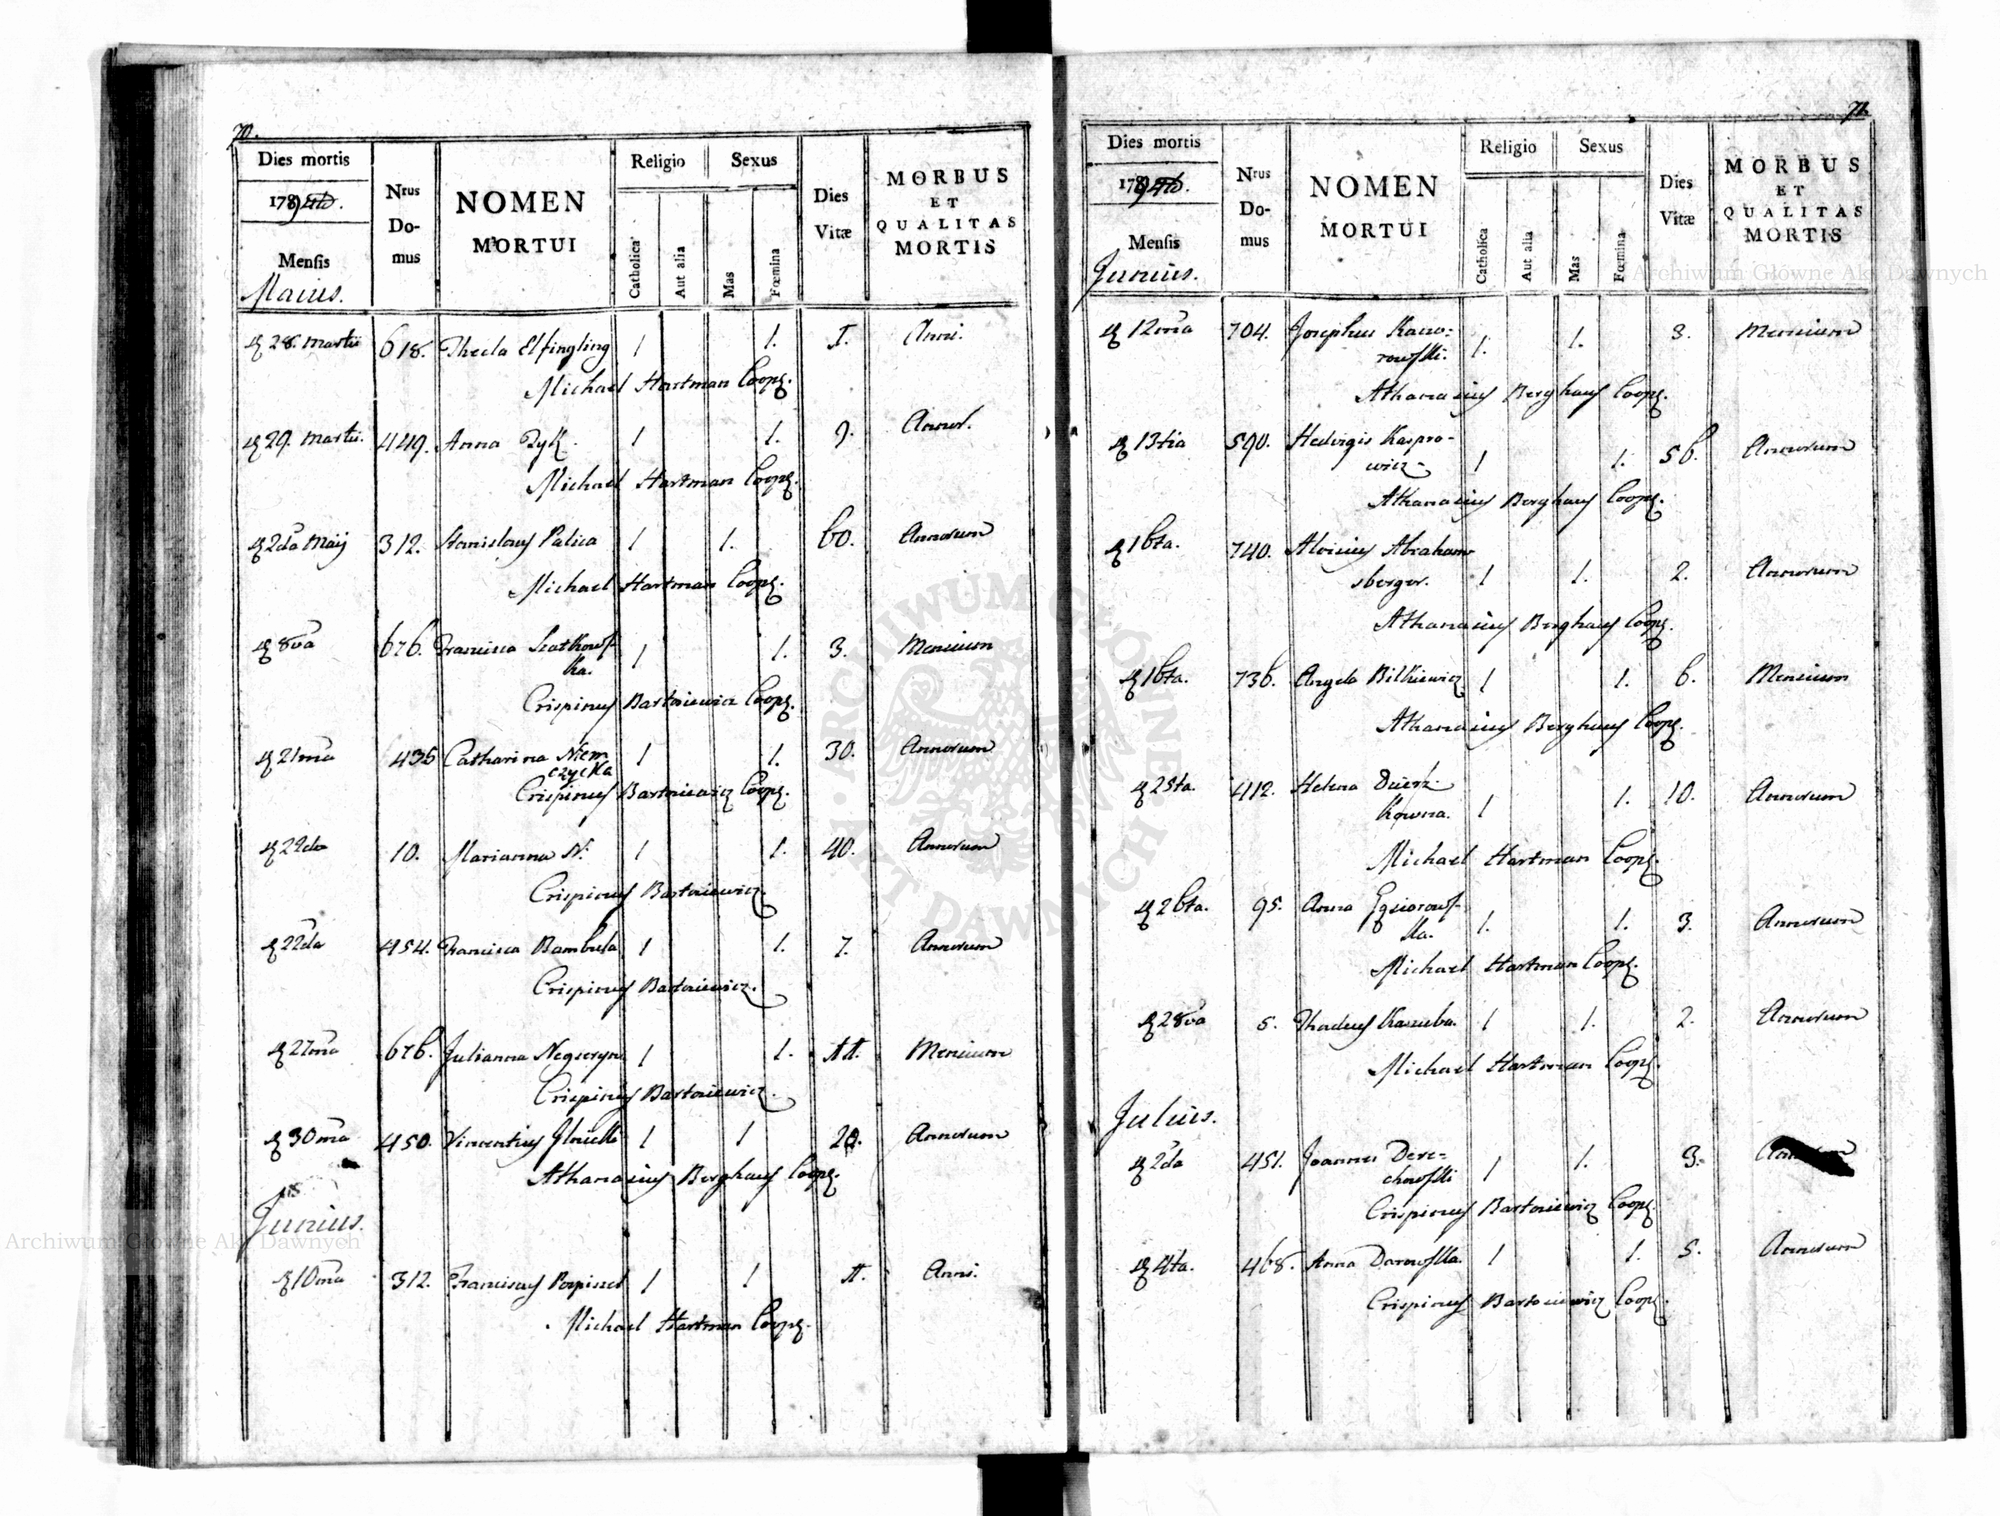 70.
Dies mortis
1794to.
Mensis
Maius.
Nrus Do-
mus
NOMEN
MORTUI
Religio
Catholica
Aut alia
Sexus
Mas
Fœmina
Dies
Vitæ
MORBUS
ET
QUALITAS
MORTIS
28. Martii 618. Thecla Elfingling 1 1. 1. Anni.
Michael Hartman Coop.
29. Martii. 449. Anna 1 1. 9. Annor.
Michael Hartman Coop.
2da Maij 312. Stanislaus Palica 1 1. 60. Annorum
Michael Hartman Coop.
8va 676. Francisca Szatkowf-
ka. 1 1. 3. Mensium
Crispinus Bartosiewicz Coop.
21ma 436 Catharina Niem
czycka 1 1. 30. Annorum
Crispinus Bartosiewicz Coop.
22da 10. Marianna N. 1 1. 40. Annorum
Crispinus Bartosiewicz.
22da 454. Francisca Bambula 1 1. 7. Annorum
Crispinus Bartosiewicz.
27ma 676. Julianna 1 1. 11. Mensium
Crispinus Bartosiewicz.
30ma 450. Vincentius 1 1 Annorum
Athanasius Berghaus Coop.
Junius.
10ma 312. Franciscus 1 1 1. Anni.
Michael Hartman Coop.
71.
Dies mortis
1794to.
Mensis
Junius.
Nrus
Do-
mus
NOMEN
MORTUI
Religio
Catholica
Aut alia
Sexus
Mas
Fœmina
Dies
Vitæ
MORBUS
ET
QUALITAS
MORTIS
12ma 704. Josephus
1. 1. 3. Mensium
Athanasius Berghaus Coop.
13tia 590. Hedvigis Kaspro-
wicz 1 1. 56. Annorum
Athanasius Berghaus Coop.
16ta. 740. Aloisius Abraham-
sberger. 1 1. 2. Annorum
Athanasius Berghaus Coop.
16ta. 736. Angela Bilkiewicz 1 1. 6. Mensium
Athanasius Berghaus Coop.
25ta. 412. Helena
kowna. 1 1. 10. Annorum
Michael Hartman Coop.
26ta. 95. Anna Gąsiorowf-
ka. 1. 1. 3. Annorum
Michael Hartman Coop.
28va 5. Thadeus Kaszuba. 1 1. 2. Annorum
Michael Hartman Coop.
Julius.
2da 451. Joannes Dere-
chowfki 1 1. 3.
Crispinus Bartosiewicz Coop.
4ta. 468. Anna Darowfka. 1 1. 5. Annorum
Crispinus Bartosiewicz Coop.
Archiwum Główne Akt Dawnych
Archiwum Główne Akt Dawnych
ARCHIWUM GŁÓWNE AKT DAWNYCH